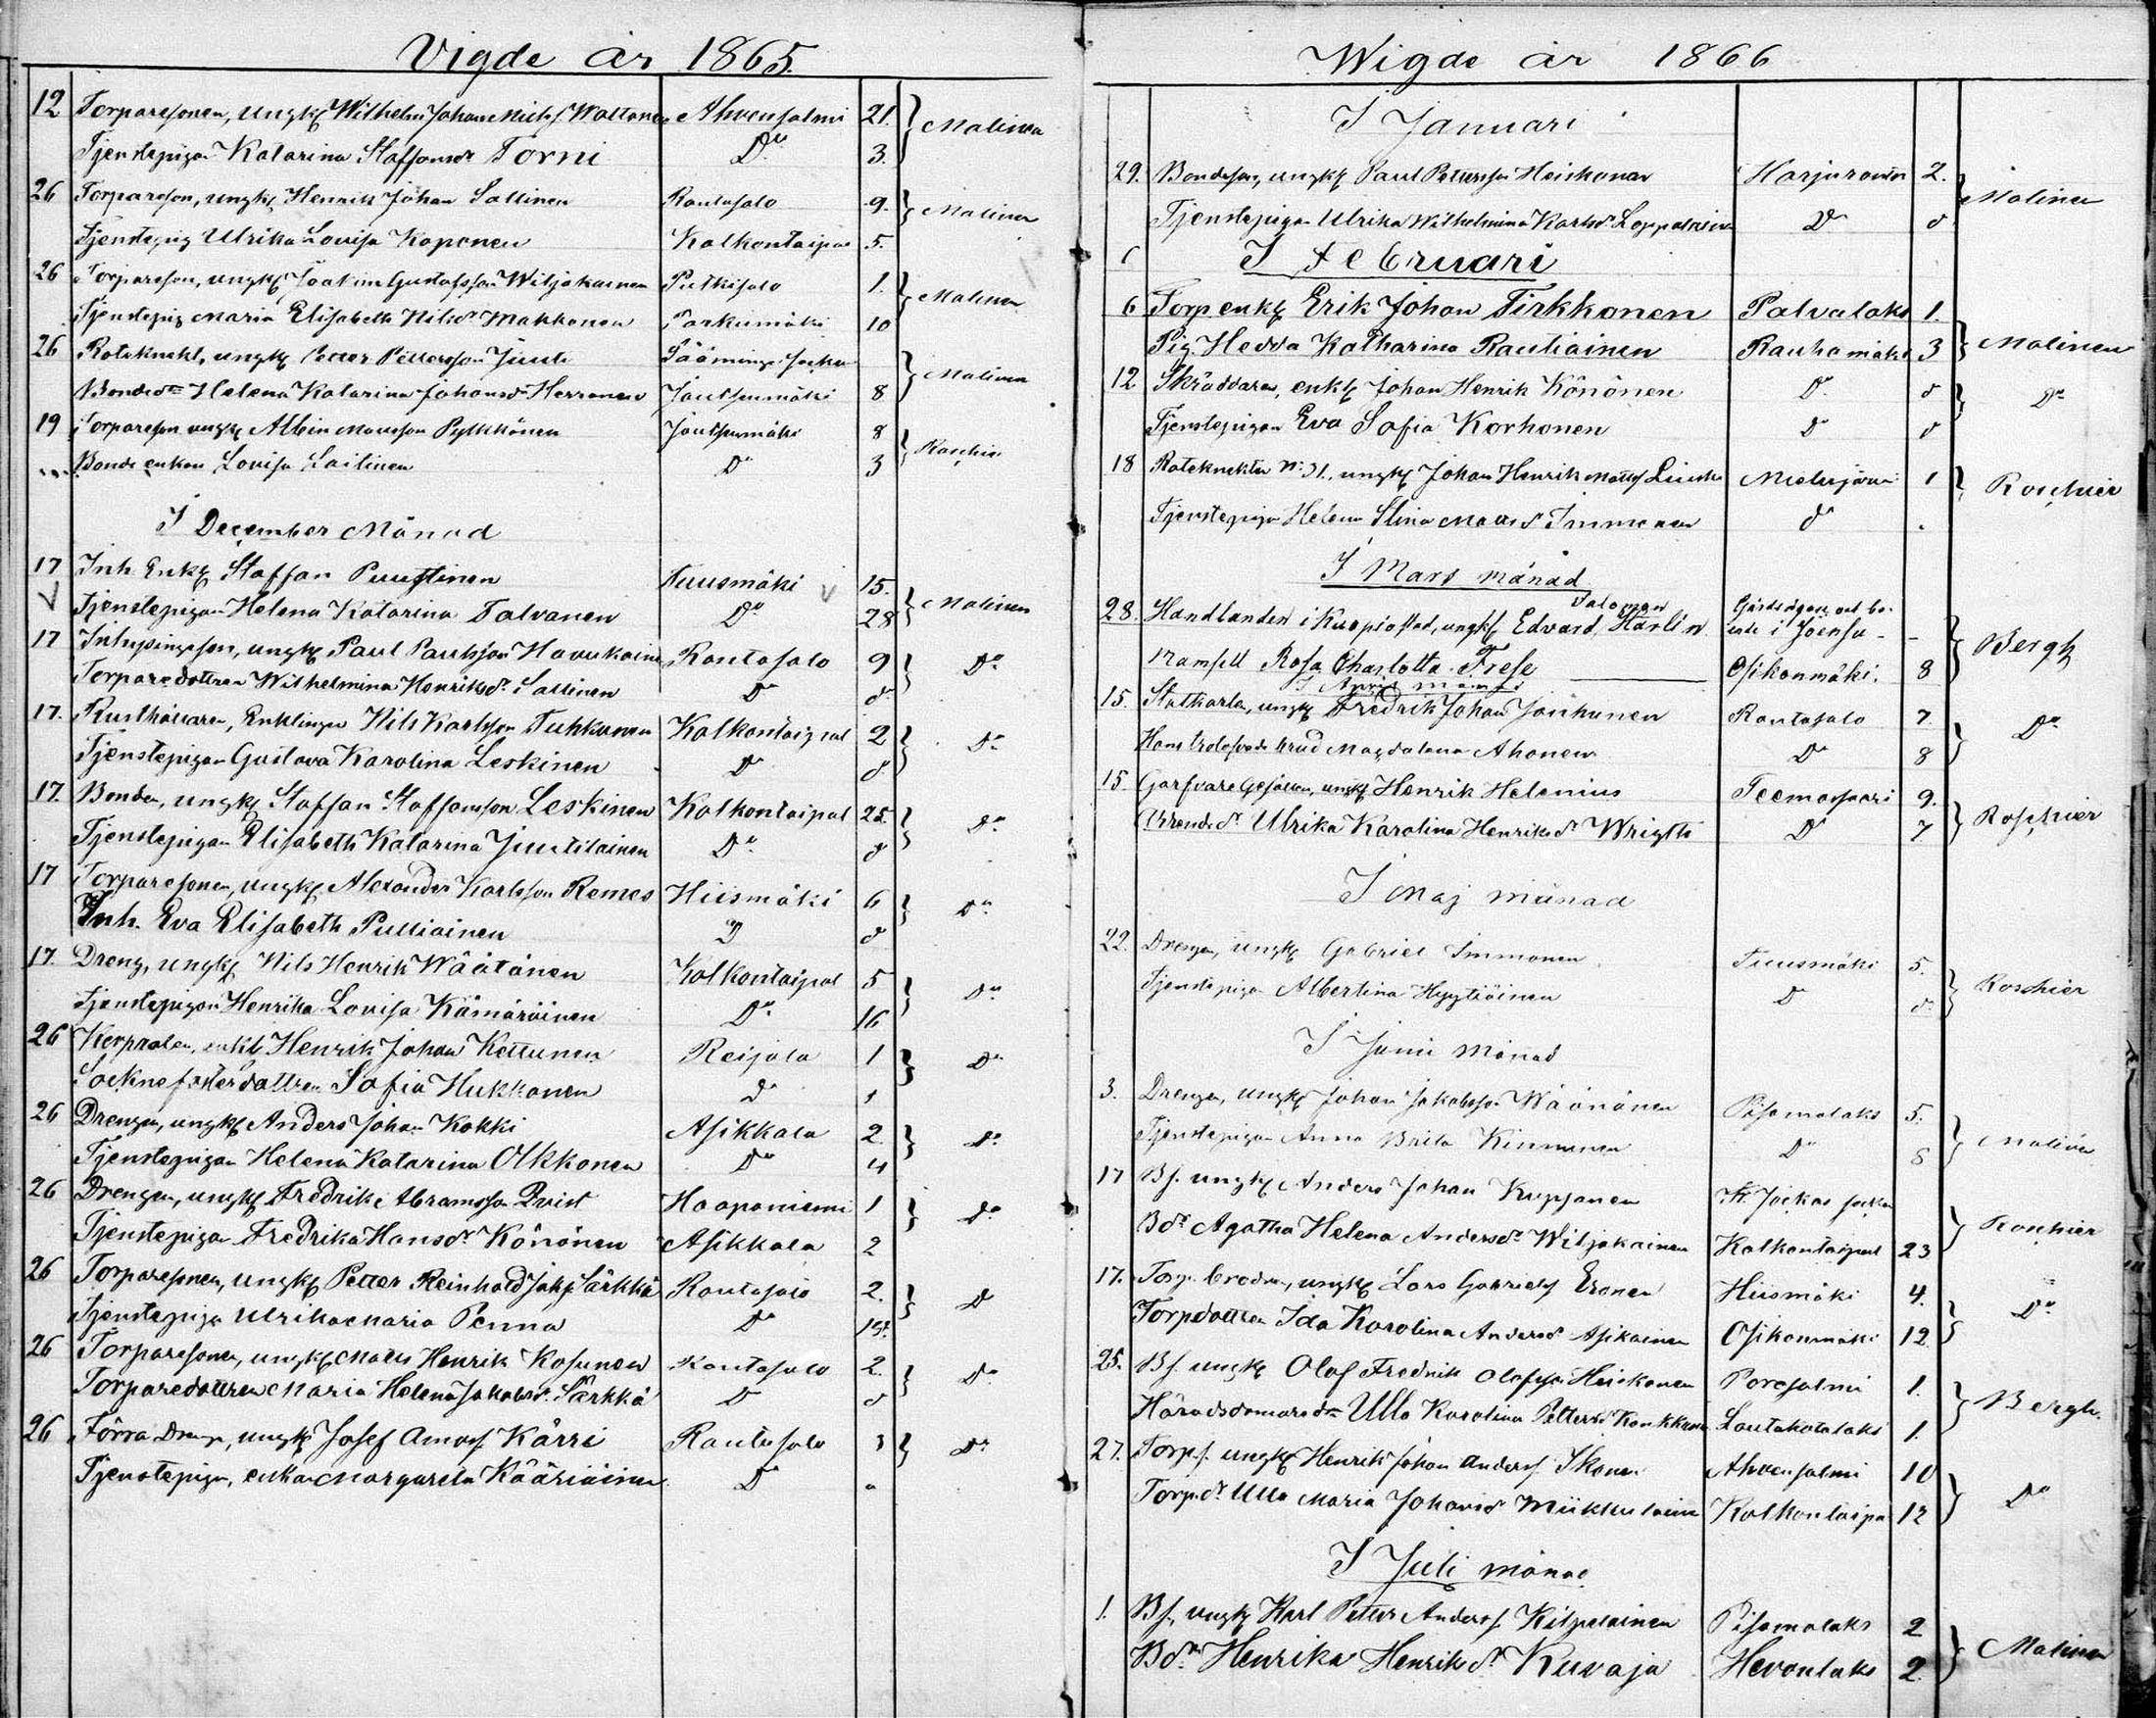 Vigde år 1865.
12 Torparesonen, ungk Wilhelm Johan Nielsf Waltonen Ahvensalmi 21. Malinen
Tjenstepigan Katarina Staffansdr Torni Do 3.
26 Torpareson, ungk Henrik Johan Sallinen Rantasalo 9. Malinen
Tjenstepig Ulrika Lovisa Kaponen Kolkontaipal 5.
26 Torpareson, ungk Joakim Gustafsson Wiljakainen Putkisalo 1. Malinen
Tjenstepig Maria Elisabeth Nilsdr Makkonen Parkumäki 10
26 Roteknekt, ungk Petter Pettersson Juuti Säämingi Socken Malinen
Bondedr Helena Katarina Johansdr Herranen Joutsenmäki 8
19 Torpareson ungk Albin Mausson Pylkkönen Joutsenmäki 8 Roschier
Bonde enkan Lovisa Laitinen Do 3
I December Månad
17 Inh Enkl Staffan Puustinen Tuusmäki 15. Malinen
Tjenstepigan Helena Katarina Talvanen Do 28
17 Inhysingeson, ungk Paul Paulsson Havukainen Rantasalo 9 Do
Torparedottren Wilhelmina Henriksdr Sallinen Do do
17. Rusthållaren, Enklingen Nils Karlsson Tuhkunen Kolkontaipal 2 Do
Tjenstepigan Gustava Karolina Leskinen Do do
17. Bonden, ungk Staffan Staffansson Leskinen Kolkontaipal 25. Do
Tjenstepigan Elisabeth Katarina Juutilainen Do do
17 Torparesonen, ungk Alexander Karlsson Remes Hiismäki 6 Do
Inh. Eva Elisabeth Pulliainen D do
17. Dreng, ungk Nils Henrik Wäätänen Kolkontaipal 5 Do
Tjenstepigan Henrika Lovisa Kämäräinen Do 16
26 Korpralen, enkl Henrik Johan Kettunen Reijola 1 Do
Socknefosterdottren Sofia Hukkanen do 1
26 Drengen, ungk Anders Johan Kokki Asikkala 2. Do
Tjenstepigan Helena Katarina Olkkonen Do 4
26 Drengen, ungk Fredrik Abramsson Qvist Haapaniemi 1 Do
Tjenstepiga Fredrika Hansdr Könönen Asikkala 2
26 Torparesonen, ungk Petter Reinhold Jaksf Särkkä Rantasalo 2. D
Tjenstepiga Ulrika Maria Penna Do 19.
26 Torparesonen, ungk Matts Henrik Kosunen Rantasalo 2. Do
Torparedottren Maria Helena Jakobsdr Särkkä D do
26 Förra Dreng, ungk Josef Amosf Kärri Rantasalo 3 Do
Tjenstepigan, enkan Margareta Kääriäinen Do
Wigde år 1866
I Januari
29. Bondeson, ungk Paul Pettersson Heiskanen Harjuranta 2. Malinen
Tjenstepigan Ulrika Wilhelmina Karlsdr Loppalainen D do
I Februari
6 Torp enkl Erik Johan Tirkkonen Palvalaks 1. Malinen
Pig. Hedda Katharina Rautiainen Rauhamäki 3
12 Skräddaren, enkl Johan Henrik Könönen Do do Do
Tjenstepigan Eva Sofia Korhonen Do do
18 Roteknekten No 31, ungk Johan Henrik Mattsf Lind Mielusjärvi 1 Roschier
Tjenstepiga Helena Stina Mattsdr Immonen do
I Mars månad
28. Handlanden i Kuopio stad, ungk Edvard Salomon Harlin Gårdsägare och bo-ende i Joensu - Bergh
Mamsell Rosa Charlotta Frese Osikonmäki. 8
I April månad
15. Statkarlen, ungk Fredrik Johan Jauhunen Rantasalo 7. Do
Hans trolofvade brud Magdalena Ahonen Do 8
15. Garfvare Gesällen, ungk Henrik Helenius Teemassaari 9. Roschier
Arrendedr Ulrika Karolina Henriksdr Wrigth D 7.
I Maj månad
22. Drengen, ungk Gabriel Immonen Tuusmäki 5. Roschier
Tjenstepigan Albertina Hyytiäinen D do
I Juni Månad
3. Drengen, ungk Johan Jakobsson Wäänänen Pisamalaks 5. Malinen
Tjenstepigan Anna Brita Kinnunen D 8
17 Bs. ungk Anders Johan Kuppanen St. Jockas socken Roschier
Bdr Agatha Helena Andersdr Wiljakainen Kolkontaipal 23
17. Torp. brodren, ungk Lars Gabrielsf Eronen Hiismäki 4. Do
Torpdottren Ida Karolina Andersdr Asikainen Osikonmäki 12
25. Bs. ungk Olof Fredrik Olofsson Heiskanen Porosalmi 1. Bergh.
Häradsdomaredr Ulla Karolina Pettersdr Koukkunen Lautakotalaks 1.
27. Torps. ungk Henrik Johan Andersf Ikonen Ahvensalmi 10 Do
Torp.dr Ulla Maria Johansdr Miikkulainen Kolkontaipal 12
I Juli månad
1. Bs. ungk Karl Petter Andersf Kilpelainen Pisamalaks 2 Malinen
Bdr Henrika Henriksdr Kuvaja Hevonlaks 2